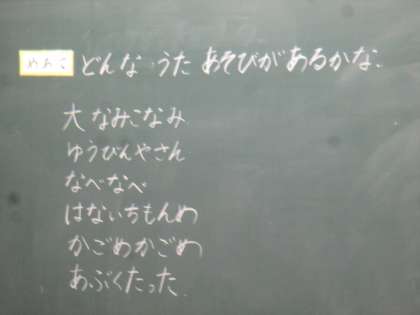 めあて どんな うた あそびが あるかな。
大なみこなみ
ゆうびんやさん
なべなべ
はないちもんめ
かごめかごめ
あぶくたった